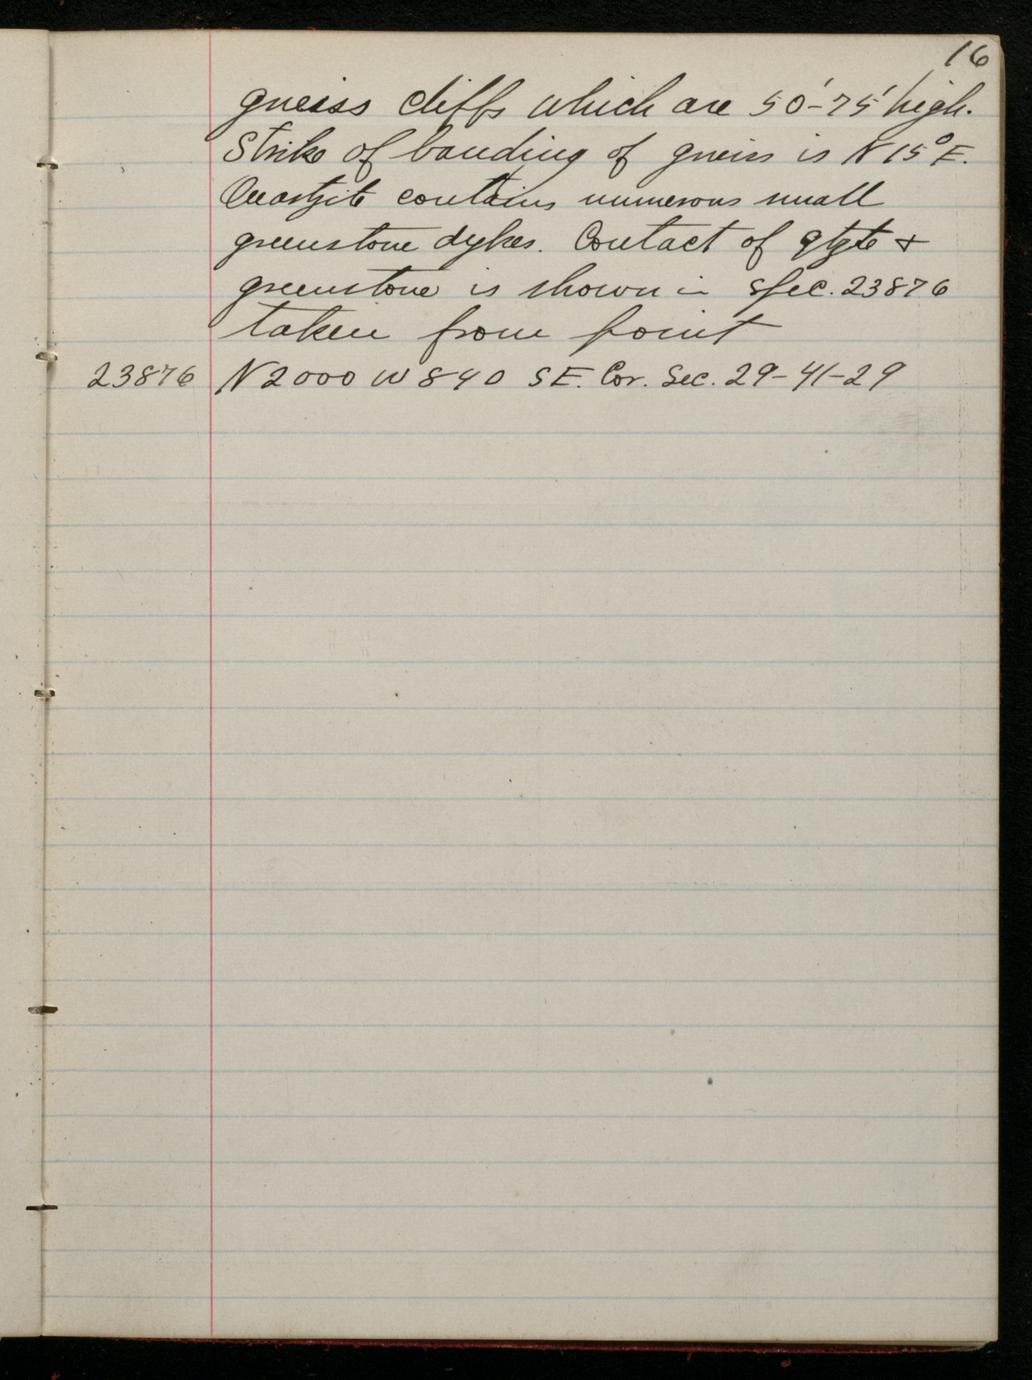 16
gneiss cliffs which are 50'-75' high.
Strike of banding of gneiss is N 15° E.
Quartzite contains numerous small
greenstone dykes. Contact of qtzte &
greenstone is shown in spec. 23876
taken from point
23876 N 2000 W 840 S E. Cor. Sec. 29-41-29